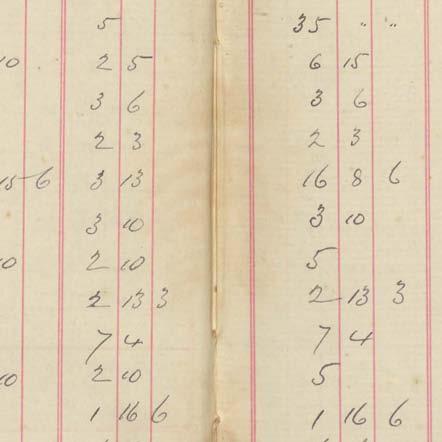 5 35 " "
10 2 5 6 15
3 6 3 6
2 3 2 3
15 6 3 13 16 8 6
3 10 3 10
10 2 10 5
2 13 3 2 13 3
7 4 7 4
10 2 10 5
1 16 6 1 16 6